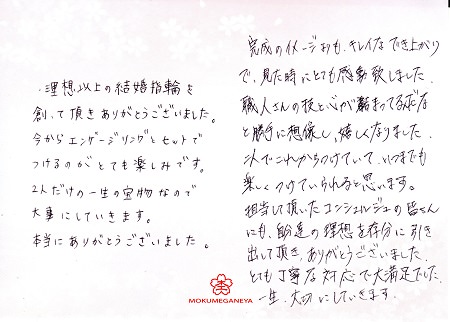 理想以上の結婚指輪を
創って頂きありがとうございました。
今からエンゲージリングとセットで
つけるのがとても楽しみです。
2人だけの一生の宝物なので
大事にしていきます。
本当にありがとうございました。
完成のイメージよりも、キレイなでき上がり
で、見た時にとても感動致しました。
職人さんの技と心が詰まってるんだな
と勝手に想像し、嬉しくなりました。
二人でこれからつけていて、いつまでも
楽しくつけていられると思います。
担当して頂いたコンシェルジュの皆さん
にも、私達の理想を存分に引き
出して頂き、ありがとうございました。
とても丁寧な対応で大満足でした。
一生、大切にしていきます。
MOKUMEGANEYA